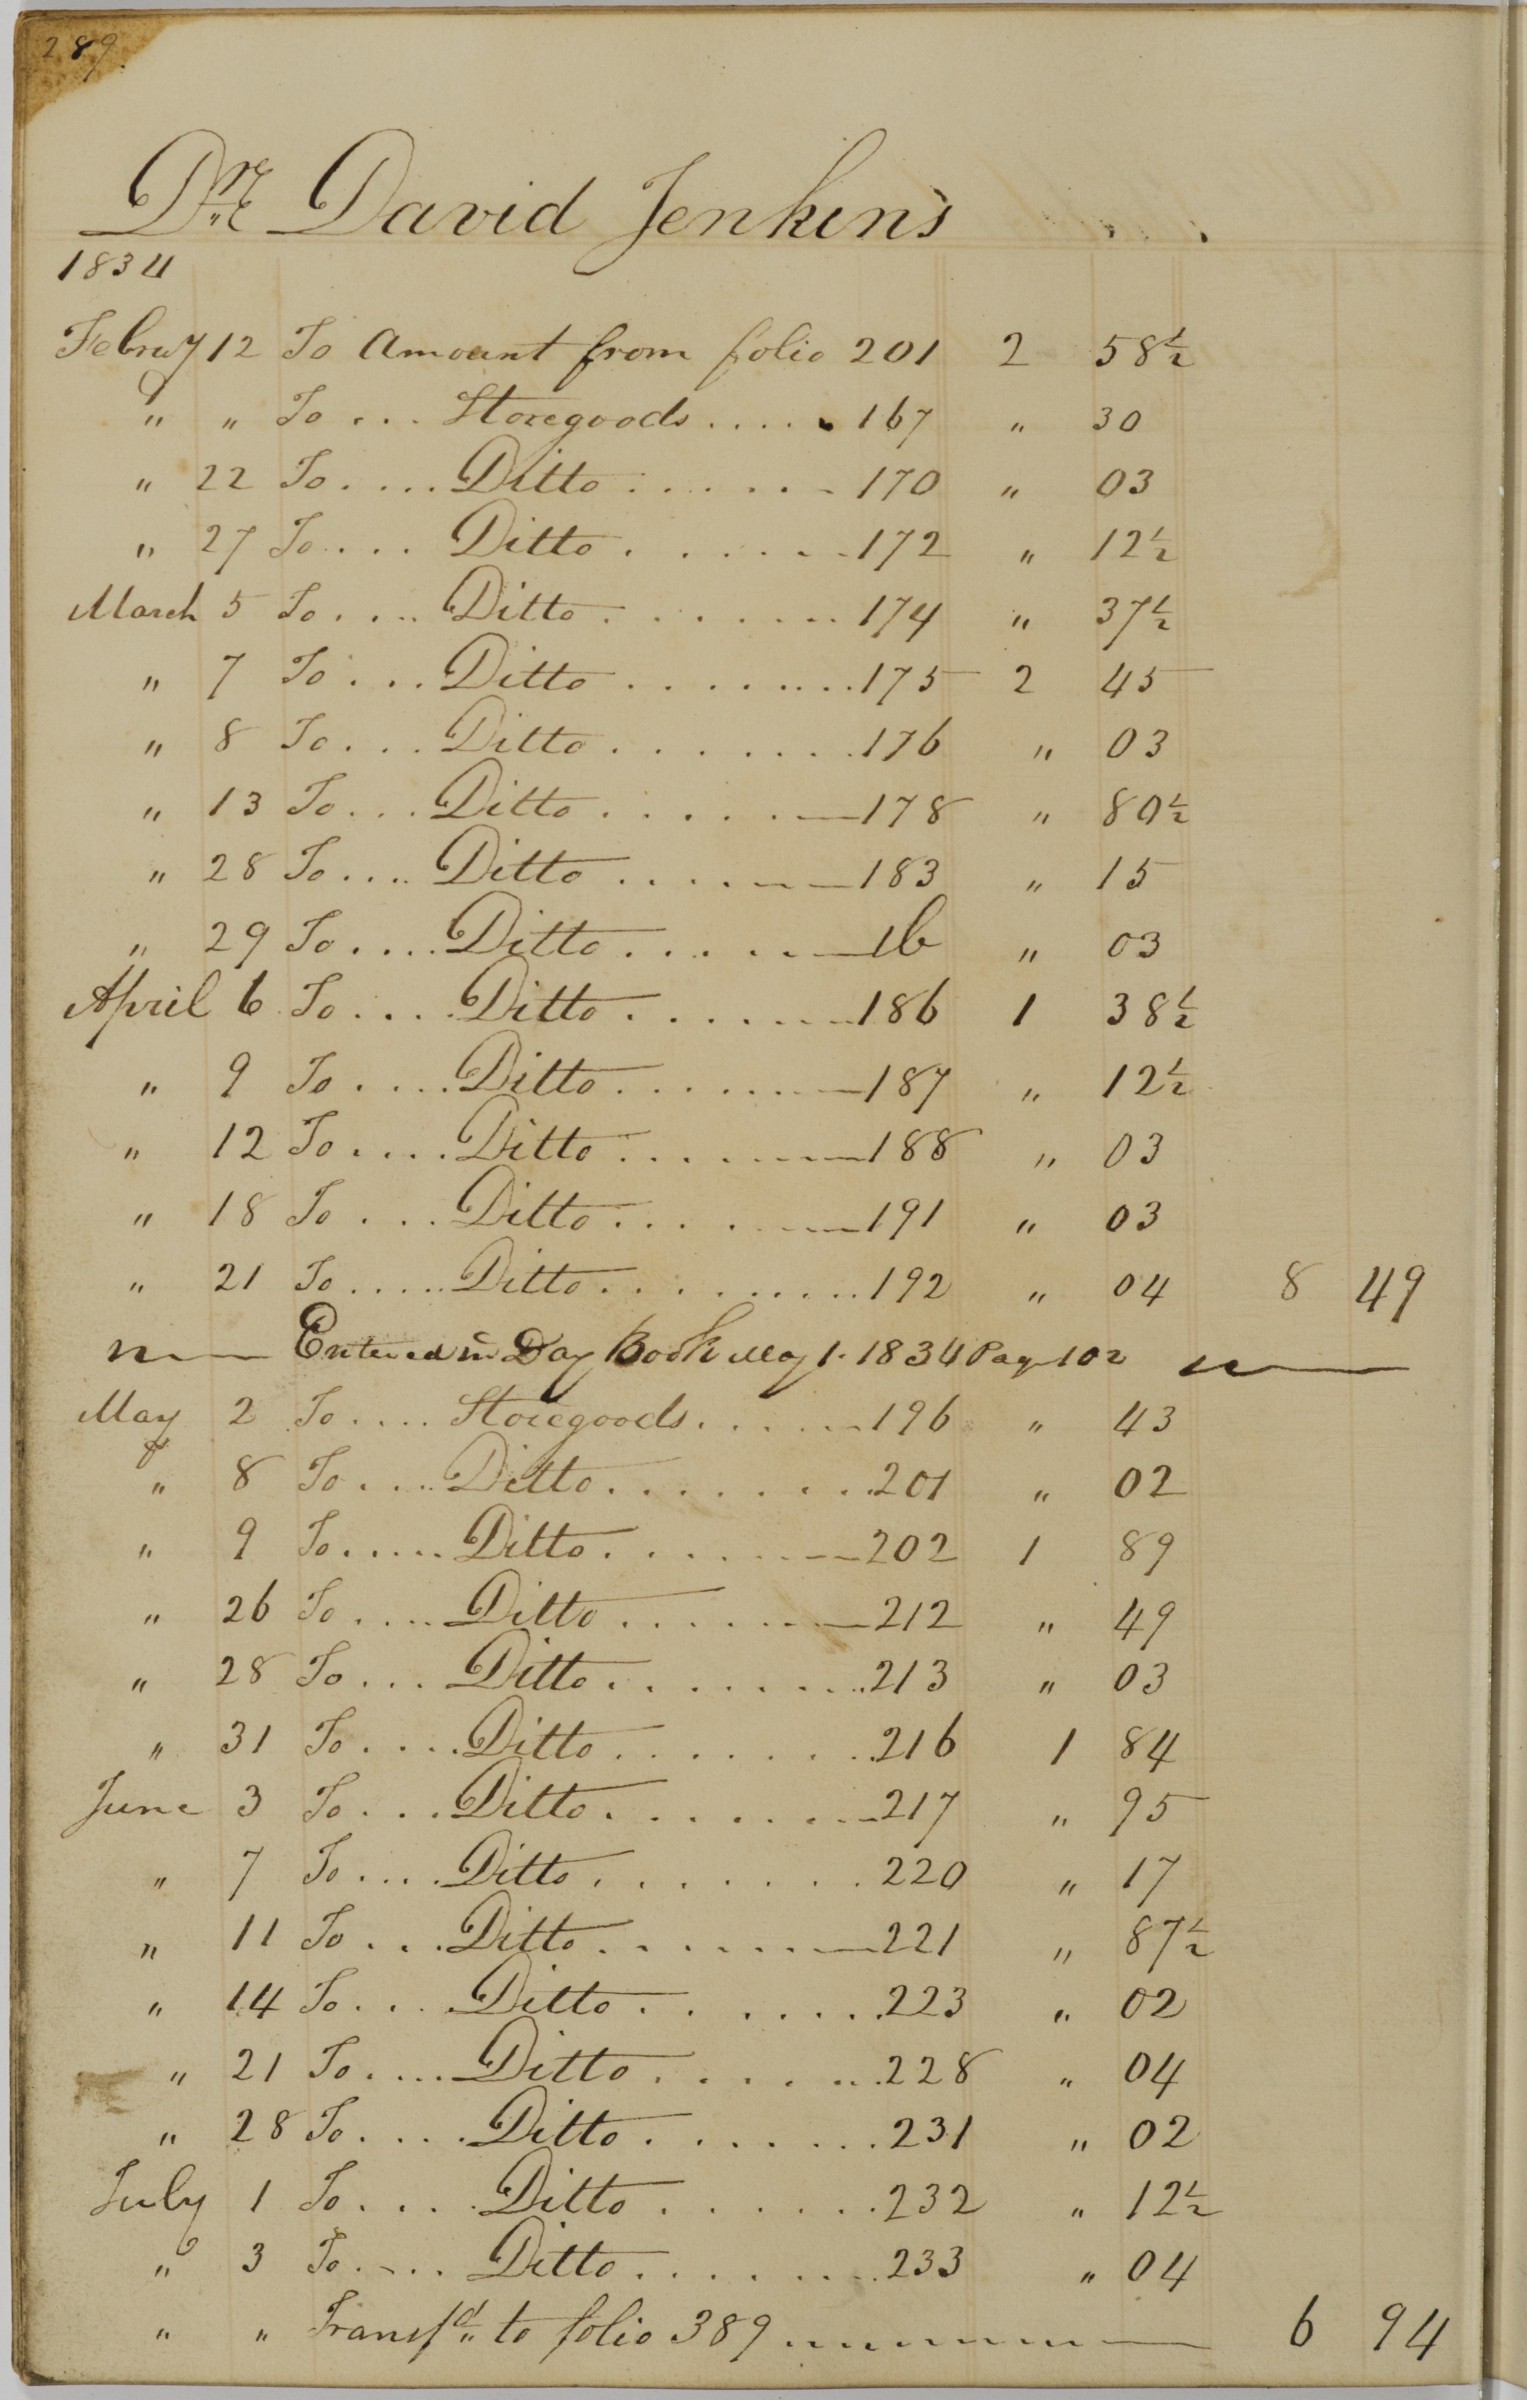 289.
Dr. David Jenkins . . . .
1834
Februy 12 To Amount from folio 201 2 58½
" " To ... Storegoods ..... 167 " 30
" 22 To .... Ditto ...... 170 " 03
" 27 To .... Ditto ...... 172 " 12½
March 5 To .... Ditto ........ 174 " 37½
" 7 To ... Ditto ........ 175 2 45
" 8 To ... Ditto ....... 176 " 03
" 13 To ... Ditto ..... 178 " 80½
" 28 To .... Ditto ..... 183 " 15
" 29 To .... Ditto ..... Ib " 03
April 6 To .... Ditto ....... 186 1 38½
" 9 To .... Ditto ....... 187 " 12½
" 12 To .... Ditto ....... 188 " 03
" 18 To ... Ditto ...... 191 " 03
" 21 To ..... Ditto ......... 192 " 04 8 49
Entered in Day Book May 1. 1834 Page 102
May 2 To .... Storegoods ...... 196 " 43
" 8 To .... Ditto ........ 201 " 02
" 9 To ..... Ditto ....... 202 1 89
" 26 To .... Ditto ...... 212 " 49
" 28 To ... Ditto ........ 213 " 03
" 31 To .... Ditto ........ 216 1 84
June 3 To ... Ditto ....... 217 " 95
" 7 To .... Ditto ....... 220 " 17
" 11 To ... Ditto ...... 221 " 87½
" 14 To .... Ditto ....... 223 " 02
" 21 To .... Ditto ....... 228 " 04
" 28 To .... Ditto ....... 231 " 02
July 1 To .... Ditto ...... 232 " 12½
" 3 To .... Ditto ....... 233 " 04
" " Transfd to folio 389 ........ 6 94